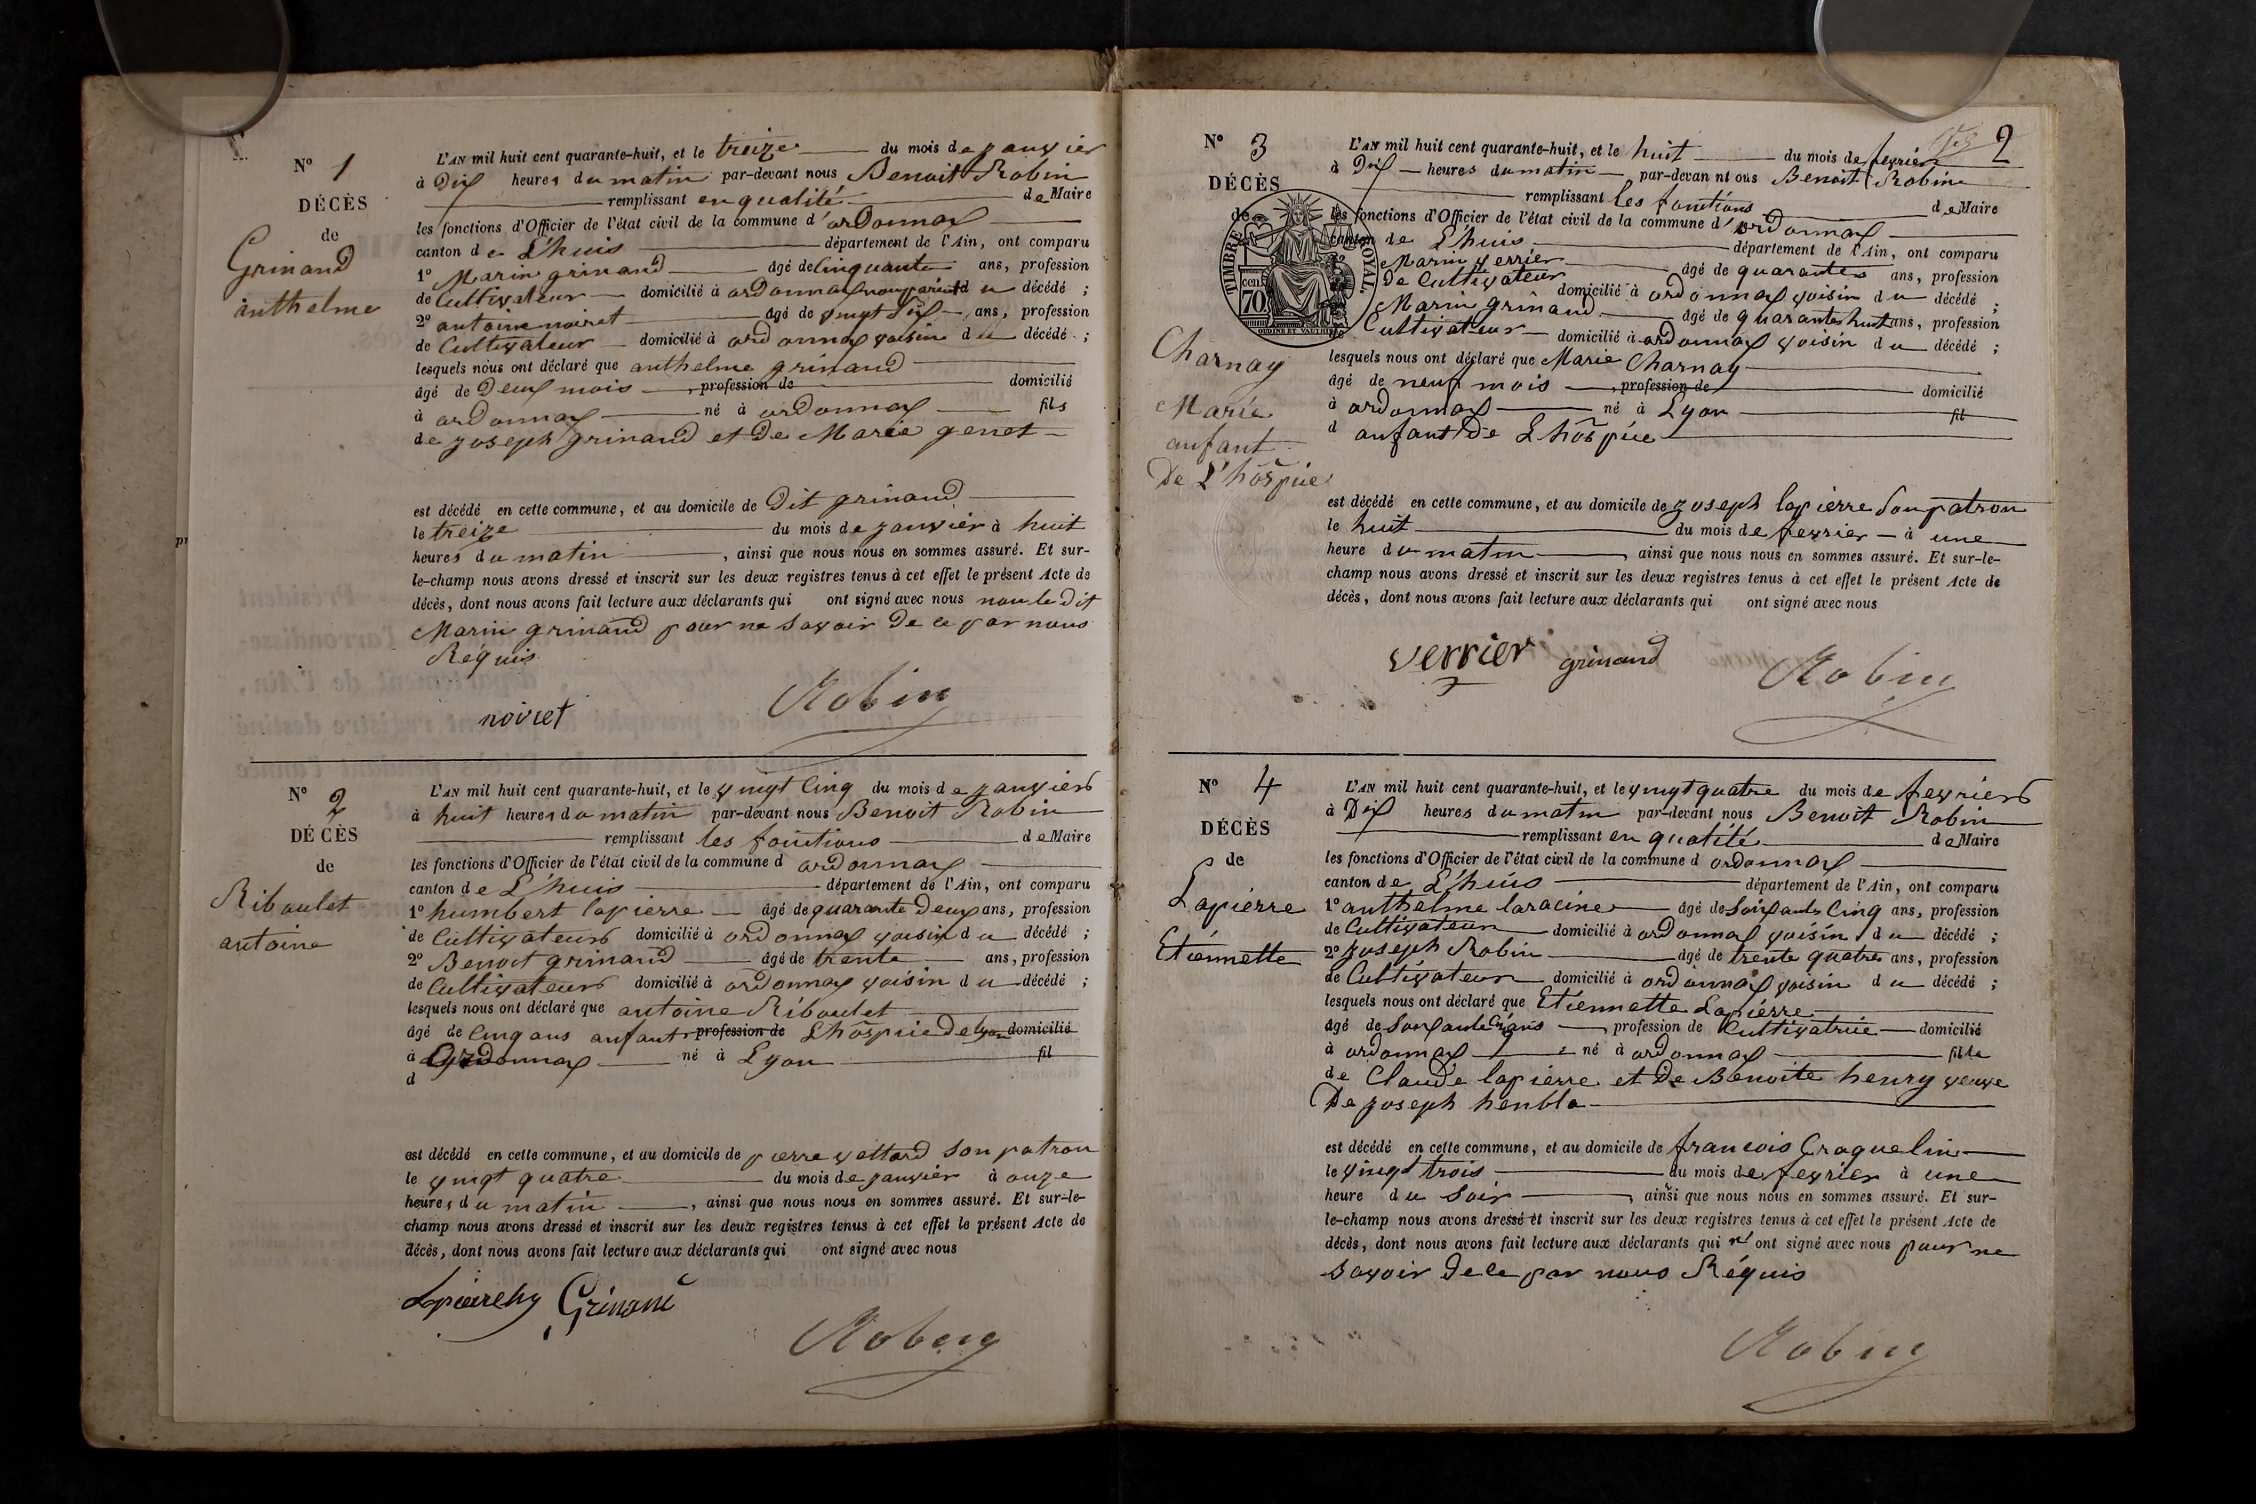 N° 1
DÉCÈS
de
Grinand
anthelme
L'AN mil huit cent quarante-huit, et le treize du mois de janvier
à Dix heures du matin par-devant nous Benoit Robin
remplissant en qualité de Maire
les fonctions d'Officier de l'état civil de la commune d'ordonnax
canton de L'huis département de l'Ain, ont comparu
1° Marin grinand âgé de Cinquante ans, profession
de Cultivateur domicilié à ordonnax non parent du décédé ;
2° antoine noiret âgé de vingt Dix ans, profession
de Cultivateur domicilié à ordonnax voisin du décédé ;
lesquels nous ont déclaré que anthelme grinand
âgé de Deux mois , profession de domicilié
à ordonnax né à ordonnax fils
de joseph grinand et de Marie genet
est décédé en cette commune, et au domicile de Dit grinand
le treize du mois de janvier à huit
heures du matin , ainsi que nous nous en sommes assuré. Et sur-
le-champ nous avons dressé et inscrit sur les deux registres tenus à cet effet le présent Acte de
décès, dont nous avons fait lecture aux déclarants qui ont signé avec nous non le dit
Marin grinand pour ne savoir De ce par nous
Réquis
noiret Robin
N° 2
DÉCÈS
de
Riboulet
antoine
L'AN mil huit cent quarante-huit, et le vingt Cinq du mois de janvier
à huit heures du matin par-devant nous Benoit Robin
remplissant les fonctions de Maire
les fonctions d'Officier de l'état civil de la commune d ordonnax
canton de L'huis département de l'Ain, ont comparu
1° humbert lapierre âgé de quarante Deux ans, profession
de Cultivateur domicilié à ordonnax voisin du décédé ;
2° Benoit grinand âgé de trente ans, profession
de Cultivateur domicilié à ordonnax voisin du décédé ;
lesquels nous ont déclaré que antoine Riboulet
âgé de Cinq ans anfant profession de L'hospice De lyon domicilié
à Ordonnax né à Lyon fil
d
est décédé en cette commune, et au domicile de pierre vettard son patron
le vingt quatre du mois de janvier à onze
heures du matin , ainsi que nous nous en sommes assuré. Et sur-le-
champ nous avons dressé et inscrit sur les deux registres tenus à cet effet le présent Acte de
décès, dont nous avons fait lecture aux déclarants qui ont signé avec nous
Grinand
Robin
2
N° 3
DÉCÈS
de
TIMBRE ROYAL
70 cen
Charnay
Marie
anfant
De L'hospice
L'AN mil huit cent quarante-huit, et le huit du mois de fevrier
à Dix heures du matin par-devan nt ous Benoit Robin
remplissant les fonctions de Maire
les fonctions d'Officier de l'état civil de la commune d'ordonnax
canton de L'huis département de l'Ain, ont comparu
Marin verrier âgé de quarante ans, profession
de Cultivateur domicilié à ordonnax voisin du décédé ;
Marin grinand âgé de quarante huit ans, profession
de Cultivateur domicilié à ordonnax voisin du décédé ;
lesquels nous ont déclaré que Marie Charnay
âgé de neuf mois , profession de domicilié
à ordonnax né à Lyon fil
d anfant De L'hospice
est décédé en cette commune, et au domicile de joseph lapierre Son patron
le huit du mois de fevrier à une
heure du matin , ainsi que nous nous en sommes assuré. Et sur-le-
champ nous avons dressé et inscrit sur les deux registres tenus à cet effet le présent Acte de
décès, dont nous avons fait lecture aux déclarants qui ont signé avec nous
verrier grinand Robin
N° 4
DÉCÈS
de
Lapierre
Etiennette
L'AN mil huit cent quarante-huit, et le vingt quatre du mois de fevrier
à Dix heures du matin par-devant nous Benoit Robin
remplissant en qualité de Maire
les fonctions d'Officier de l'état civil de la commune d ordonnax
canton de L'huis département de l'Ain, ont comparu
1° anthelme laracine âgé de Soixante Cinq ans, profession
de Cultivateur domicilié à ordonnax voisin du décédé ;
2° joseph Robin âgé de trente quatre ans, profession
de Cultivateur domicilié à ordonnax voisin du décédé ;
lesquels nous ont déclaré que Etiennette Lapierre
âgé de Soixante Cinq ans , profession de Cultivatrice domicilié
à ordonnax né à ordonnax fille
de Claude lapierre et De Benoite henry veuve
De joseph henbla
est décédé en cette commune, et au domicile de francois Craquelin
le vingt trois du mois de fevrier à une
heure du Soir , ainsi que nous nous en sommes assuré. Et sur-
le-champ nous avons dressé et inscrit sur les deux registres tenus à cet effet le présent Acte de
décès, dont nous avons fait lecture aux déclarants qui n' ont signé avec nous pour ne
Savoir De ce par nous Réquis
Robin